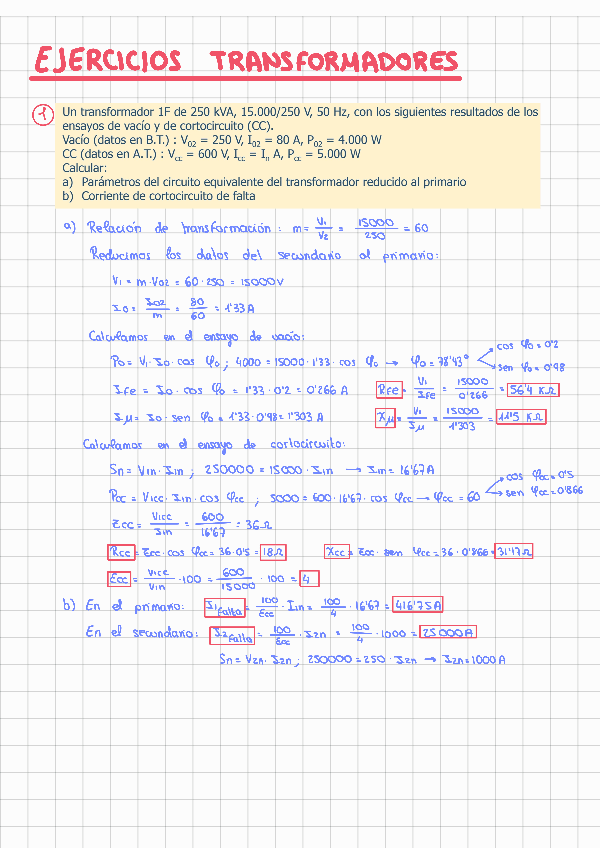 EJERCICIOS TRANSFORMADORES
1 Un transformador 1F de 250 kVA, 15.000/250 V, 50 Hz, con los siguientes resultados de los
ensayos de vacío y de cortocircuito (CC).
Vacío (datos en B.T.) : V02 = 250 V, I02 = 80 A, P02 = 4.000 W
CC (datos en A.T.) : Vcc = 600 V, Icc = In A, Pcc = 5.000 W
Calcular:
a) Parámetros del circuito equivalente del transformador reducido al primario
b) Corriente de cortocircuito de falta
a) Relación de transformación: m = V1/V2 = 15000/250 = 60
Reducimos los datos del secundario al primario:
V1 = m·V02 = 60·250 = 15000V
I0 = I02/m = 80/60 = 1'33 A
Calculamos en el ensayo de vacío:
P0 = V1·I0·cos φ0 ; 4000 = 15000·1'33·cos φ0 → φ0 = 78'43° cos φ0 = 0'2
sen φ0 = 0'98
IFe = I0·cos φ0 = 1'33·0'2 = 0'266 A RFe = V1/IFe = 15000/0'266 = 56'4 KΩ
Iμ = I0·sen φ0 = 1'33·0'98 = 1'303 A Xμ = V1/Iμ = 15000/1'303 = 11'5 KΩ
Calculamos en el ensayo de cortocircuito:
Sn = V1n·I1n ; 250000 = 15000·I1n → I1n = 16'67A
Pcc = V1cc·I1n·cos φcc ; 5000 = 600·16'67·cos φcc → φcc = 60 cos φcc = 0'5
sen φcc = 0'866
Zcc = V1cc/I1n = 600/16'67 = 36Ω
Rcc = Zcc·cos φcc = 36·0'5 = 18Ω Xcc = Zcc·sen φcc = 36·0'866 = 31'17Ω
Ecc = V1cc/V1n·100 = 600/15000·100 = 4
b) En el primario: I1falta = 100/Ecc·I1n = 100/4·16'67 = 416'75A
En el secundario: I2falta = 100/Ecc·I2n = 100/4·1000 = 25000A
Sn = V2n·I2n ; 250000 = 250·I2n → I2n = 1000A